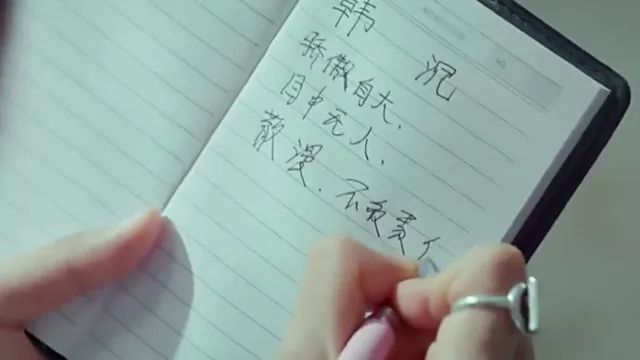 韩沉
骄傲自大、
目中无人、
散漫．不负责